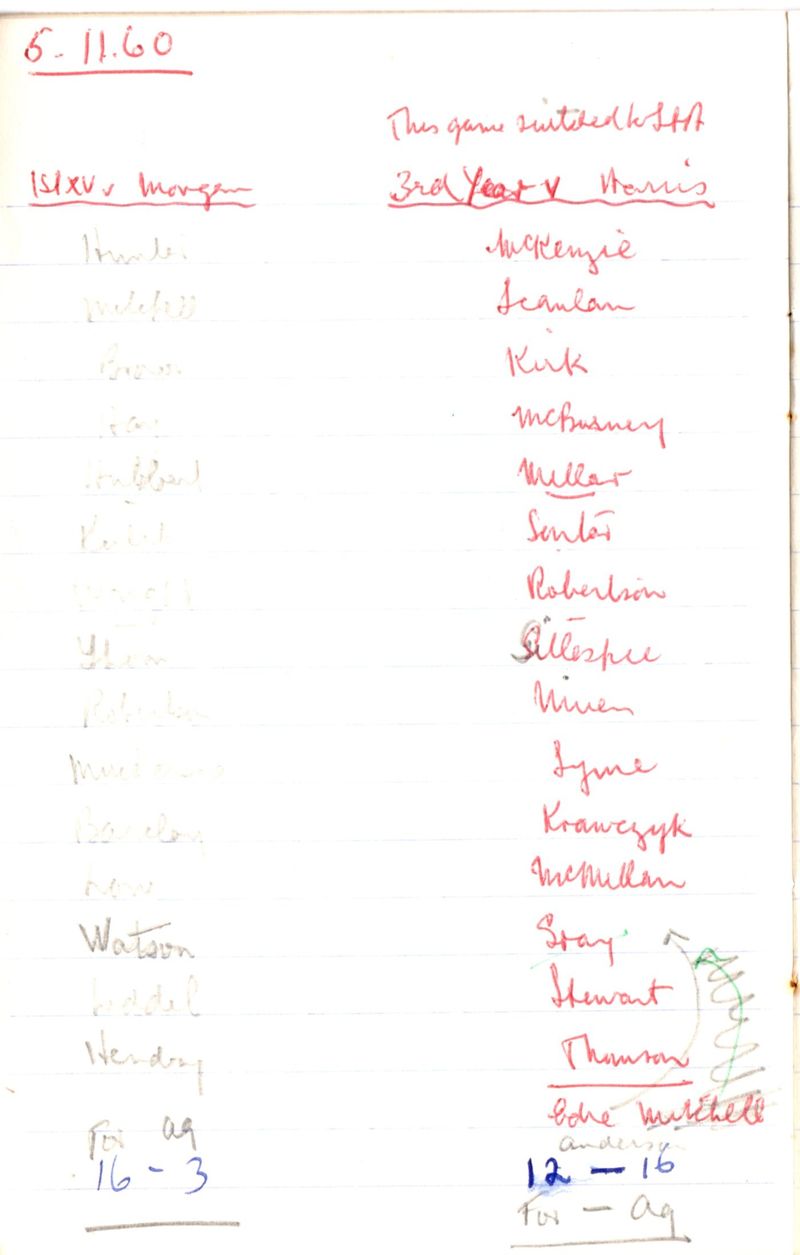 5.11.60
This game switched to
1st XV v Morgan
3rd Year v Harris
Hunter
McKenzie
Mitchell
Scanlan
Brown
Kirk
Hay
McBurney
Hubbard
Millar
Robertson
Gillespie
Robertson
Niven
Syme
Barclay
Krawczyk
Low
McMillan
Watson
Gray
Liddel
Stewart
Hendry
Thomson
Mitchell
For ag
Anderson
16 - 3
12 - 16
For - ag